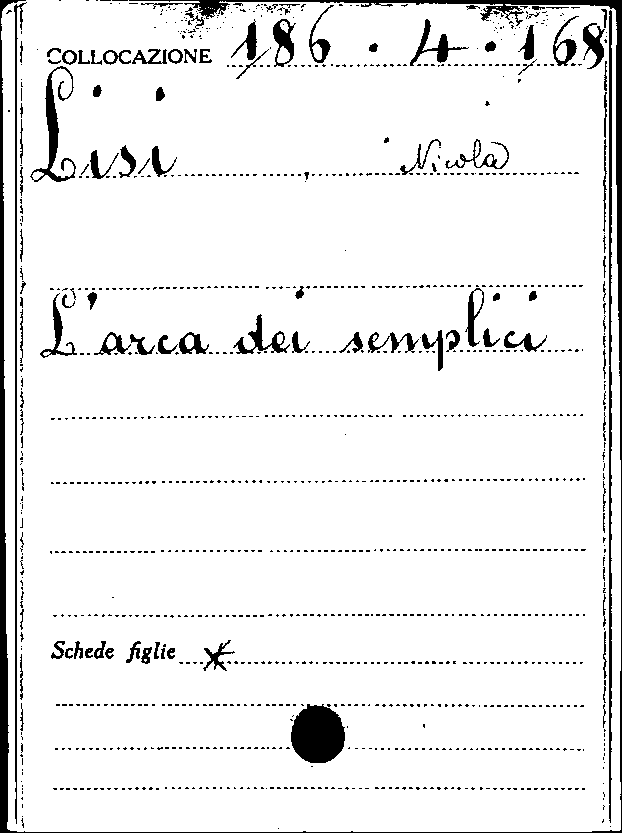 COLLOCAZIONE 186 . 4 . 168
Lisi , Nicola
L'arca dei semplici
Schede figlie